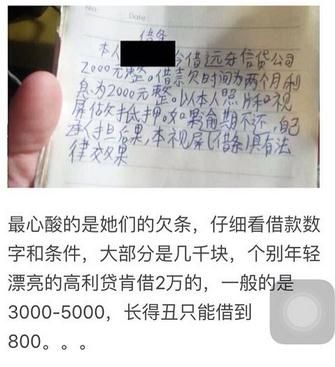 No.
Date
借条
本人 今借远夺信贷公司
2000元整。借款欠时间为两个月利
息为2000元整。以本人照片和视
屏依次抵押。如果逾期不还,自己
承担后果,本视屏(借条)具有法
律效果
最心酸的是她们的欠条,仔细看借款数
字和条件,大部分是几千块,个别年轻
漂亮的高利贷肯借2万的,一般的是
3000-5000,长得丑只能借到
800。。。